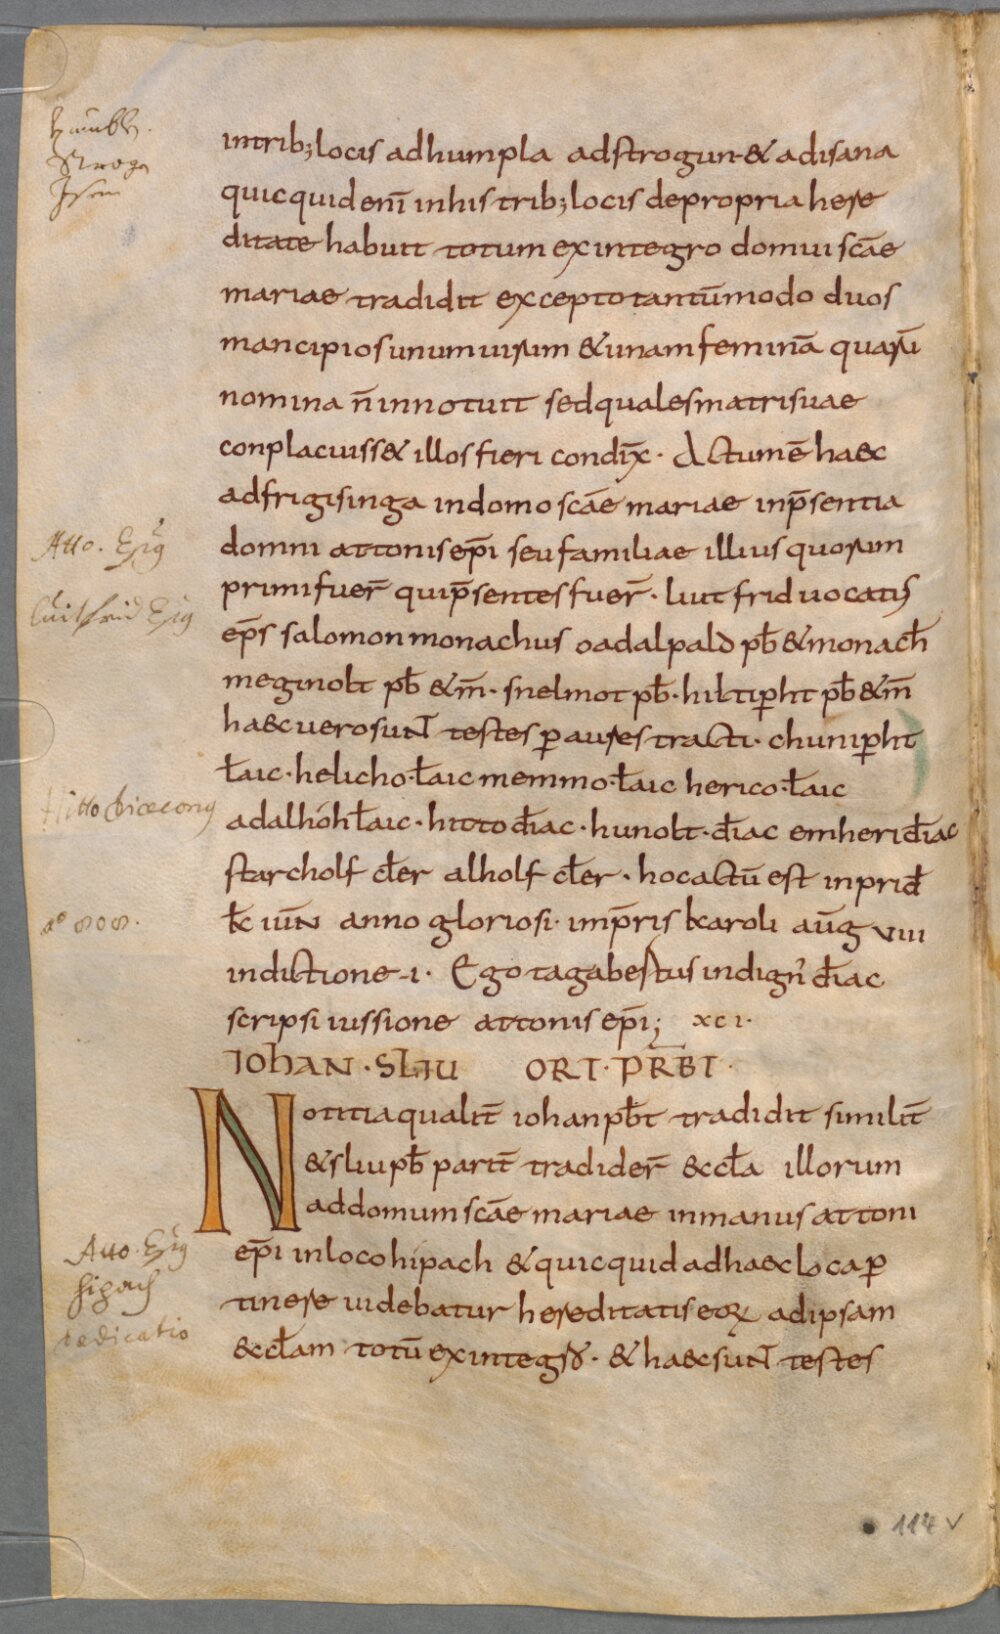 intrib; locis adhumpla adstrogun & adisana
quicquid eni̅ inhis trib; locis depropria here
ditate habuit totum exintegro domui sc̅ae
mariae tradidit exceptotantu̅modo duos
mancipios unum uirum & unam femina̅ quaru̅
nomina n̅ innotuit sedquales matrisuae
conplacuiss& illos fieri condix̅ · Actum e̅ haec
adfrigisinga indomo sc̅ae mariae inp̅sentia
domni attonis ep̅i seu familiae illius quorum
primi fuer̅ quip̅sentes fuer̅ · liutfrid uocatus
ep̅s salomon monachus oadalpald pb̅ & monach̅
meginolt pb̅ & m̅ · snelmot pb̅ · hiltip̲ht pb̅ & m̅
haec uero sunt testes p̲ aures tracti · chunip̲ht
l̅aic · helicho · l̅aic memmo · l̅aic herico · l̅aic
adalhoh l̅aic · hitto diac̅ · hunolt · diac̅ emheri diac̅
starcholf cl̅er alholf cl̅er · hoc actu̅ est inprid̅
k̅ iun̅ anno gloriosi · imp̅ris karoli au̅g VIII
indictione · I · Ego tagabertus indign̅ diac̅
scripsi iussione attonis ep̅i; XCI ·
IOHAN · SLIU ORT · PR̅BT ·
Notitia qualit̅ iohan pb̅t tradidit similit̅
& sliu pb̅ partē tradider̅ eccl̅a illorum
ad domum sc̅ae mariae inmanus attoni
ep̅i inloco hipach & quicquid ad haec loca p̲
tinere uidebatur hereditatis eoꝝ adipsam
eccl̅am totu̅ exintegro · & haec sunt testes
Isen
Atto. Ep̅g
Luitfrid Ep̅g
Hitto diacony
aº 808.
Atto. Ep̅g
hipach
dedicatio
114 v